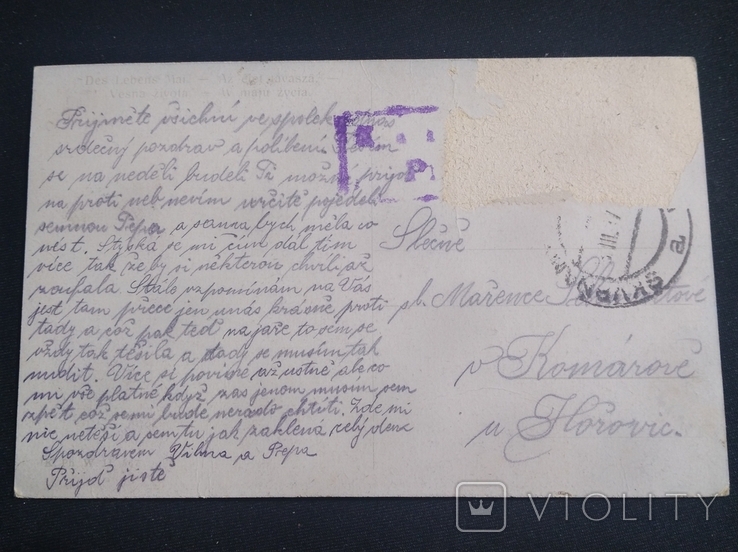 Des Lebens Mai. — Az élet tavasza. —
Vesna života. — W maju życia.
Přijměte všichni ve spolek
srdečný pozdrav a políbení.
se na neděli budeli Ti možné přijď
na proti neb nevím určitě pojedeli
semnou Pepa a sama bych měla co
nést. Stýská se mi čím dál tím
více tak že by si některou chvíli až
zoufala. Stále vzpomínám na Vás
jest tam přece jen unás krásně proti
tady a což pak teď na jaře to sem se
vždy tak těšila a tady se musím tak
nudit. Více si povíme až ustně ale co
mi vše platné když zas jenom musím sem
zpět což se mi bude nerado chtíti. Zde mi
nic netěší a sem tu jak zakletá celý den
S pozdravem Vilma a Pepa
Přijď jistě
P
Slečně
sl. Mařence
v Komárově
u Hořovic.
SKVRŇANY
III
VIOLITY